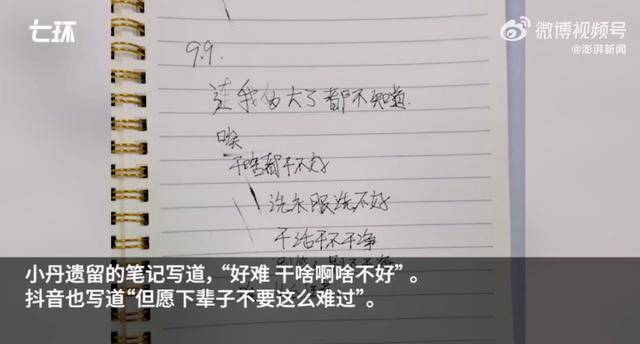 七环
微博视频号
@澎湃新闻
9.9.
连我多大了都不知道
唉
干啥都干不好
洗衣服洗不好
干活干不干净
小丹遗留的笔记写道，“好难 干啥啊啥不好”。
抖音也写道“但愿下辈子不要这么难过”。